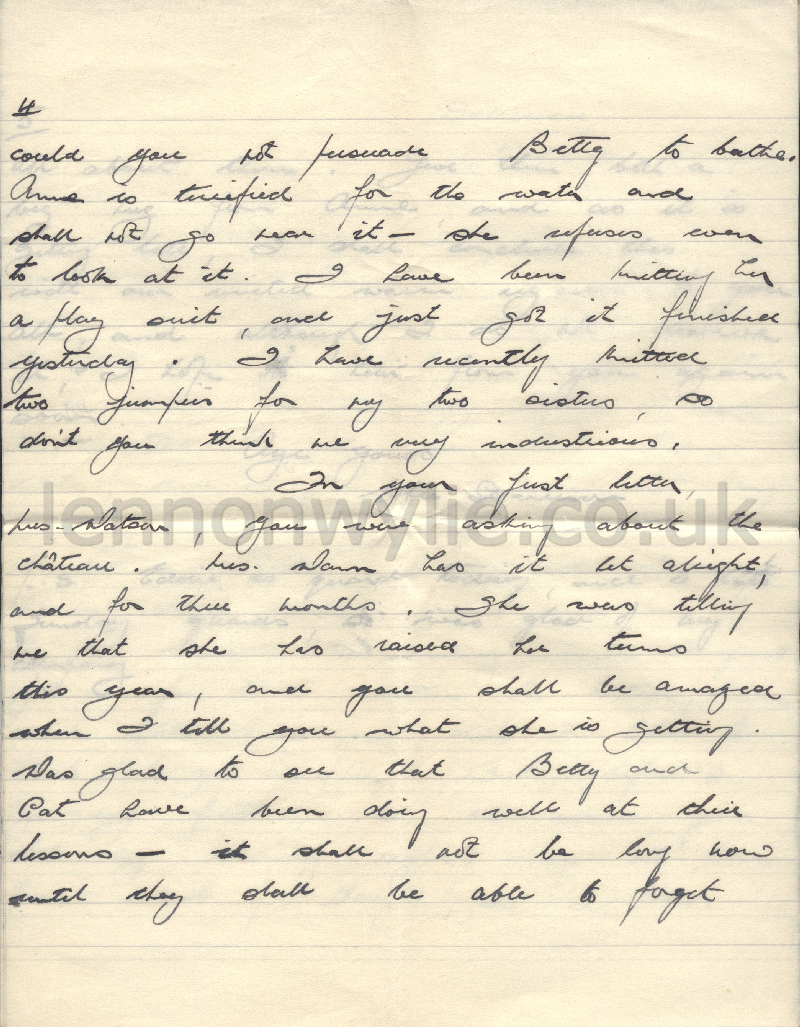 4
could you not persuade Betty to bathe.
Anne is terrified for the water and
shall not go near it - she refuses even
to look at it. I have been knitting her
a play suit, and just got it finished
yesterday. I have recently knitted
two jumpers for my two sisters, so
don't you think me very industrious.
In your last letter,
Mrs. Watson, you were asking about the
château. Mrs. Dawn has it let alright,
and for three months. She was telling
me that she has raised her terms
this year, and you shall be amazed
when I tell you what she is getting.
Was glad to see that Betty and
Pat have been doing well at their
lessons - it shall not be long now
until they shall be able to forget
lennonwylie.co.uk